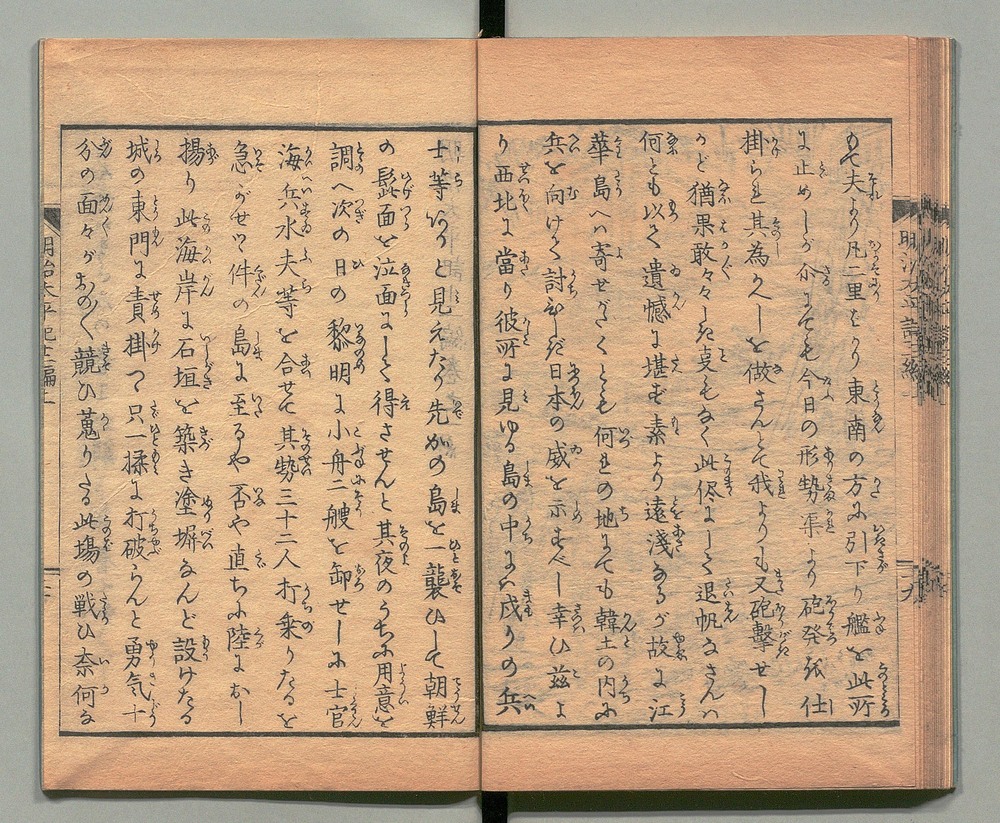 もて夫より凡二里をかり東南の方に引下り艦を此所
に止めしが介にても今日の形勢渠より砲発仕
掛られ其為久しを做さんとて我よりも又砲撃せし
かど猶果敢々々しき支もなく此侭にして退帆なさんハ
何とも以て遺憾に堪ず素より遠浅なるが故に江
華島へハ寄せがたくとも何れの地にても韓土の内に
兵を向けて討取し日本の威を示すべし幸ひ茲よ
り西北に當り彼所に見ゆる島の中にハ戍りの兵
士等ありと見えたり先かの島を一襲ひして朝鮮
の髭面を泣面にして得させんと其夜のうちに用意を
調へ次の日の黎明に小舟二艘を卸せしに士官
海兵水夫等を合せて其勢三十二人打乗りたるを
急がせつ件の島に至るや否や直ちに陸におし
揚り此海岸に石垣を築き塗塀なんど設けたる
城の東門に責掛つ只一揉に打破らんと勇気十
分の面々がおの〱競ひ蒐りたる此場の戦ひ奈何な
明治太平記十二編上